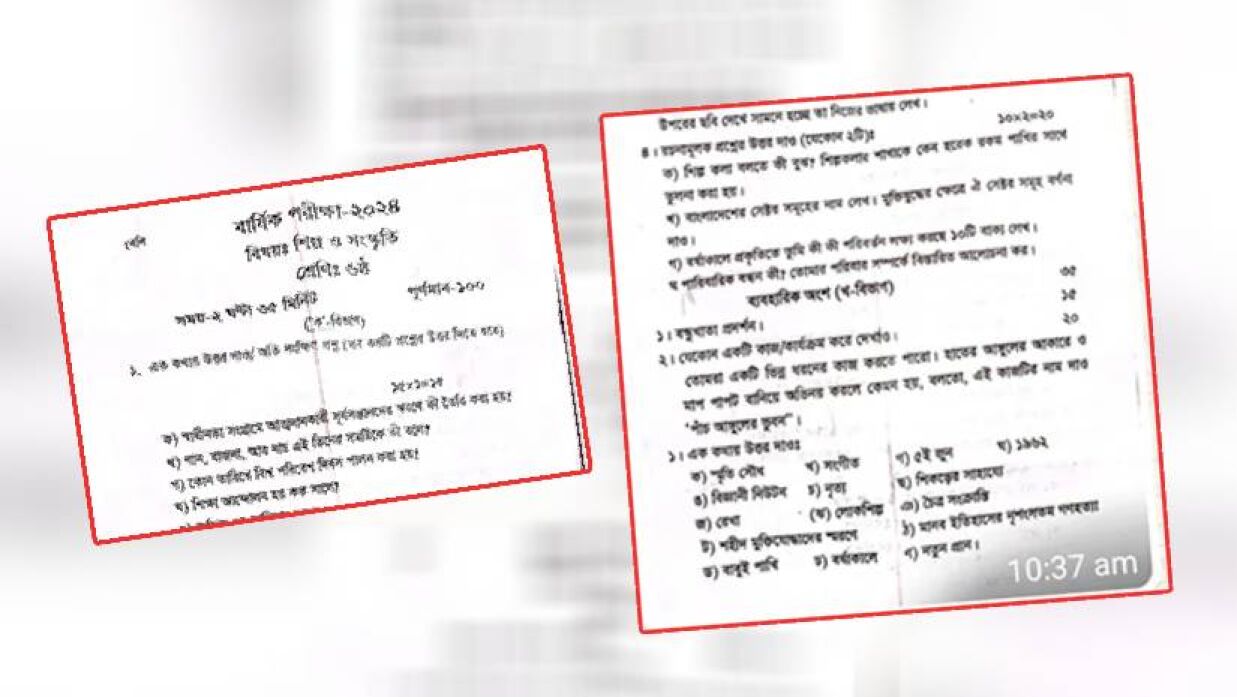 বার্ষিক পরীক্ষা-২০২৪
বিষয়ঃ শিল্প ও সংস্কৃতি
শ্রেণিঃ ৬ষ্ঠ
সময়-২ ঘন্টা ৩৫ মিনিট
পূর্ণমান-১০০
('ক'-বিভাগ)
১. এক কথায় উত্তর দাও/ অতি সংক্ষিপ্ত প্রশ্ন প্রশ্নের উত্তর দিতে হবে)
১৫×১=১৫
ক) স্বাধীনতা সংগ্রামে আত্মদানকারী সূর্যসন্তানদের স্মরণে কী তৈরি করা হয়?
খ) গান, বাজনা, আর নাচ এই তিনের সমষ্টিকে কী বলে?
গ) কোন তারিখে বিশ্ব পরিবেশ দিবস পালন করা হয়?
ঘ) শিক্ষা আন্দোলন হয় কত সালে?
উপরের ছবি দেখে সামনে হচ্ছে তা নিজের ভাষায় লেখ।
৪। রচনামূলক প্রশ্নের উত্তর দাও (যেকোন ২টি)ঃ
১০×২=২০
ক) শিল্প কলা বলতে কী বুঝ? শিল্পকলার শাখাকে কেন হরেক রকম পাখির সাথে
তুলনা করা হয়।
খ) বাংলাদেশের সেক্টর সমূহের নাম লেখ। মুক্তিযুদ্ধের ক্ষেত্রে ঐ সেক্টর সমূহ বর্ণনা
দাও।
গ) বর্ষাকালে প্রকৃতিতে তুমি কী কী পরিবর্তন লক্ষ্য করছে ১০টি বাক্য লেখ।
ঘ পারিবারিক বন্ধন কী? তোমার পরিবার সম্পর্কে বিস্তারিত আলোচনা কর।
ব্যবহারিক অংশ (খ-বিভাগ)
৩৫
১। বন্ধুখাতা প্রদর্শন।
১৫
২। যেকোন একটি কাজ/কার্যক্রম করে দেখাও।
২০
তোমরা একটি ভিন্ন ধরনের কাজ করতে পারো। হাতের আঙ্গুলের আকারে ও
মাপ পাপট বানিয়ে অভিনয় করলে কেমন হয়, বলতো, এই কাজটির নাম দাও
"পাঁচ আঙ্গুলের ভুবন"।
১। এক কথায় উত্তর দাওঃ
ক) স্মৃতি সৌধ খ) সংগীত গ) ৫ই জুন ঘ) ১৯৬২
ঙ) বিজ্ঞানী নিউটন চ) নৃত্য ছ) শিকড়ের সাহায্যে
জ) রেখা (ঝ) লোকশিল্প ঞ) চৈত্র সংক্রান্তি
ট) শহীদ মুক্তিযোদ্ধাদের স্মরণে ঠ) মানব ইতিহাসের নৃশংসতম গণহত্যা
ড) বাবুই পাখি ঢ) বর্ষাকালে ণ) নতুন প্রান।
10:37 am